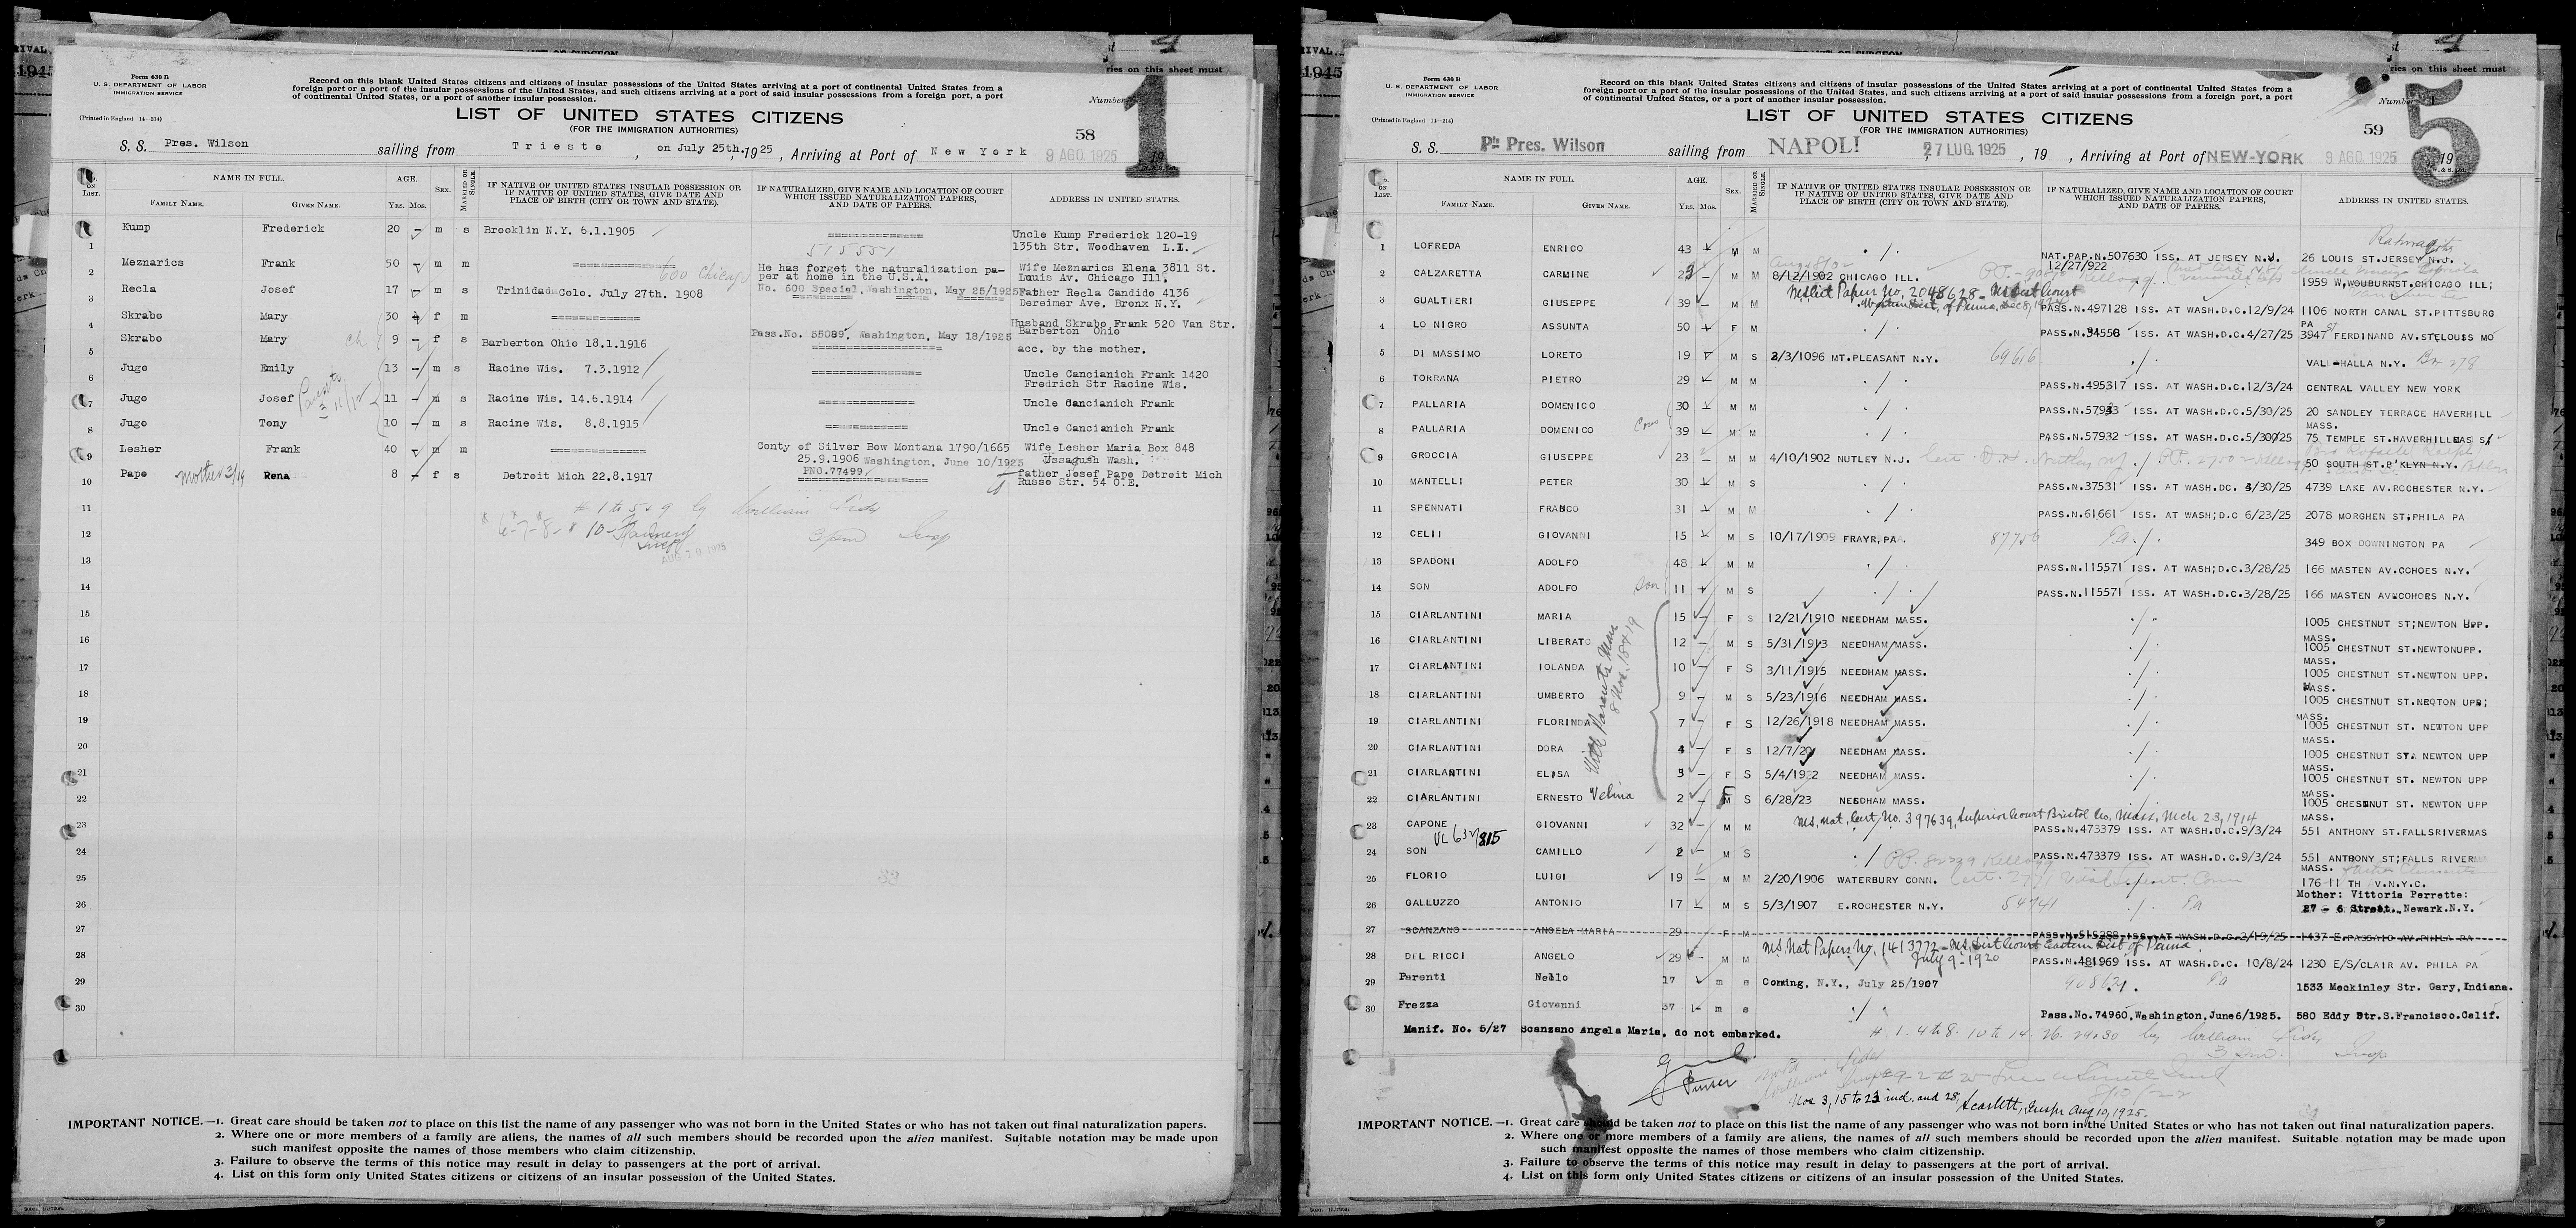 Form 630 B
U. S. DEPARTMENT OF LABOR
IMMIGRATION SERVICE
(Printed in England 14—214)
Record on this blank United States citizens and citizens of insular possessions of the United States arriving at a port of continental United States from a
foreign port or a port of the insular possessions of the United States, and such citizens arriving at a port of said insular possessions from a foreign port, a port
of continental United States, or a port of another insular possession.
LIST OF UNITED STATES CITIZENS
(FOR THE IMMIGRATION AUTHORITIES)
Number 1
58
S. S. Pres. Wilson sailing from Trieste, on July 25th. 1925, Arriving at Port of New York 9 AGO. 1925 19
No. ON LIST.
NAME IN FULL.
FAMILY NAME. GIVEN NAME.
AGE. YRS. MOS.
SEX.
MARRIED OR SINGLE.
IF NATIVE OF UNITED STATES INSULAR POSSESSION OR
IF NATIVE OF UNITED STATES, GIVE DATE AND
PLACE OF BIRTH (CITY OR TOWN AND STATE).
IF NATURALIZED, GIVE NAME AND LOCATION OF COURT
WHICH ISSUED NATURALIZATION PAPERS,
AND DATE OF PAPERS.
ADDRESS IN UNITED STATES.
1 Kump Frederick 20 – m s Brooklin N.Y. 6.1.1905 Uncle Kump Frederick 120-19
135th Str. Woodhaven L.I.
515551
2 Meznarics Frank 50 – m m 600 Chicago He has forget the naturalization pa-
per at home in the U.S.A. Wife Meznarics Elena 3811 St.
Louis Av. Chicago Ill.
3 Recla Josef 17 – m s Trinidad Colo. July 27th. 1908 No. 600 Special, Washington, May 25/1925 Father Recla Candido 4136
Dereimer Ave. Bronx N.Y.
4 Skrabo Mary 30 f m Pass.No. 55089, Washington, May 18/1925 Husband Skrabo Frank 520 Van Str.
Barberton Ohio
5 Skrabo Mary ch 9 – f s Barberton Ohio 18.1.1916 acc. by the mother.
6 Jugo Emily 13 – m s Racine Wis. 7.3.1912 Uncle Cancianich Frank 1420
Fredrich Str Racine Wis.
7 Jugo Josef 11 – m s Racine Wis. 14.6.1914 Uncle Cancianich Frank
8 Jugo Tony 10 – m s Racine Wis. 8.8.1915 Uncle Cancianich Frank
9 Lesher Frank 40 m m Conty of Silver Bow Montana 1790/1665 Wife Lesher Maria Box 848
25.9.1906 Washington, June 10/1925 Ussaqush Wash.
PNO.77499
10 Pape mother 3/14 Rena 8 – f s Detroit Mich 22.8.1917 father Josef Pape Detroit Mich
Russo Str. 54 O.E.
11 # 1 to 5 & 9 by William
12 6-7-8- 10 3 pm Insp
AUG 10 1925
13
14
15
16
17
18
19
20
21
22
23
24
25
26
27
28
29
30
IMPORTANT NOTICE.—1. Great care should be taken not to place on this list the name of any passenger who was not born in the United States or who has not taken out final naturalization papers.
2. Where one or more members of a family are aliens, the names of all such members should be recorded upon the alien manifest. Suitable notation may be made upon
such manifest opposite the names of those members who claim citizenship.
3. Failure to observe the terms of this notice may result in delay to passengers at the port of arrival.
4. List on this form only United States citizens or citizens of an insular possession of the United States.
Form 630 B
U. S. DEPARTMENT OF LABOR
IMMIGRATION SERVICE
(Printed in England 14—214)
Record on this blank United States citizens and citizens of insular possessions of the United States arriving at a port of continental United States from a
foreign port or a port of the insular possessions of the United States, and such citizens arriving at a port of said insular possessions from a foreign port, a port
of continental United States, or a port of another insular possession.
LIST OF UNITED STATES CITIZENS
(FOR THE IMMIGRATION AUTHORITIES)
Number 5
59
S. S. Pres. Wilson sailing from NAPOLI, 27 LUG. 1925, 19 , Arriving at Port of NEW-YORK 9 AGO. 1925 19
No. ON LIST.
NAME IN FULL.
FAMILY NAME. GIVEN NAME.
AGE. YRS. MOS.
SEX.
MARRIED OR SINGLE.
IF NATIVE OF UNITED STATES INSULAR POSSESSION OR
IF NATIVE OF UNITED STATES, GIVE DATE AND
PLACE OF BIRTH (CITY OR TOWN AND STATE).
IF NATURALIZED, GIVE NAME AND LOCATION OF COURT
WHICH ISSUED NATURALIZATION PAPERS,
AND DATE OF PAPERS.
ADDRESS IN UNITED STATES.
1 LOFREDA ENRICO 43 M M ./. NAT.PAP.N.507630 ISS. AT JERSEY N.J. 26 LOUIS ST.JERSEY N.J.
12/27/922
2 CALZARETTA CARMINE 23 – M M 8/12/1902 CHICAGO ILL. 1959 W,WOUBURNST.CHICAGO ILL;
3 GUALTIERI GIUSEPPE 39 – M M PASS.N.497128 ISS. AT WASH.D.C.12/9/24 1106 NORTH CANAL ST.PITTSBURG
PA
4 LO NIGRO ASSUNTA 50 F M ./. PASS.N.34558 ISS. AT WASH.D.C.4/27/25 3947 FERDINAND AV.STLOUIS MO
5 DI MASSIMO LORETO 19 M S 2/3/1096 MT.PLEASANT N.Y. 69616 ./. VALL-HALLA N.Y.
6 TORRANA PIETRO 29 M M ./. PASS.N.495317 ISS. AT WASH.D.C.12/3/24 CENTRAL VALLEY NEW YORK
7 PALLARIA DOMENICO 30 M M ./. PASS.N.57933 ISS. AT WASH.D.C.5/30/25 20 SANDLEY TERRACE HAVERHILL
MASS.
8 PALLARIA DOMENICO Cous 39 M M ./. PASS.N.57932 ISS. AT WASH.D.C.5/30/25 75 TEMPLE ST.HAVERHILLMAS S
9 GROCCIA GIUSEPPE 23 – M M 4/10/1902 NUTLEY N.J. ./. 50 SOUTH ST.B'KLYN N.Y.
10 MANTELLI PETER 30 M S ./. PASS.N.37531 ISS. AT WASH.DC. 4/30/25 4739 LAKE AV.ROCHESTER N.Y.
11 SPENNATI FRANCO 31 M M ./. PASS.N.61,661 ISS. AT WASH;D.C 6/23/25 2078 MORGHEN ST;PHILA PA
12 CELII GIOVANNI 15 M S 10/17/1909 FRAYR,PA. 87756 Pa ./. 349 BOX DOWNINGTON PA
13 SPADONI ADOLFO 48 M M ./. PASS.N.115571 ISS. AT WASH;D.C.3/28/25 166 MASTEN AV.COHOES N.Y.
14 SON ADOLFO Son 11 M S ./. PASS.N.115571 ISS. AT WASH.D.C.3/28/25 166 MASTEN AV.COHOES N.Y.
15 CIARLANTINI MARIA 15 – F S 12/21/1910 NEEDHAM MASS. ./. 1005 CHESTNUT ST;NEWTON UPP.
MASS.
16 CIARLANTINI LIBERATO 12 – M S 5/31/1913 NEEDHAM MASS. ./. 1005 CHESTNUT ST.NEWTONUPP.
MASS.
17 CIARLANTINI IOLANDA 10 – F S 3/11/1915 NEEDHAM MASS. ./. 1005 CHESTNUT ST.NEWTON UPP.
MASS.
18 CIARLANTINI UMBERTO 9 – M S 5/23/1916 NEEDHAM MASS. ./. 1005 CHESTNUT ST.NEQTON UPP;
MASS.
19 CIARLANTINI FLORINDA 7 – F S 12/26/1918 NEEDHAM MASS. ./. 1005 CHESTNUT ST. NEWTON UPP
MASS.
20 CIARLANTINI DORA 4 – F S 12/7/20 NEEDHAM MASS. ./. 1005 CHESTNUT STA NEWTON UPP
MASS.
21 CIARLANTINI ELISA 3 – F S 5/4/1922 NEEDHAM MASS. ./. 1005 CHESTNUT ST. NEWTON UPP
MASS.
22 CIARLANTINI ERNESTO Velina 2 – F S 6/28/23 NEEDHAM MASS. ./. 1005 CHESTNUT ST. NEWTON UPP
MASS.
With Parents Man
8 Nos. 18+19
U.S. Nat. Cert. No. 397639, Superior Court Bristol Co, Mass, Mch 23, 1914
23 CAPONE GIOVANNI 32 – M M PASS.N.473379 ISS. AT WASH.D.C.9/3/24 551 ANTHONY ST.FALLSRIVERMAS
24 SON CAMILLO 2 – M S ./. PASS.N.473379 ISS. AT WASH.D.C.9/3/24 551 ANTHONY ST;FALLS RIVER
MASS.
25 FLORIO LUIGI 19 – M M 2/20/1906 WATERBURY CONN. ./. 176-11 TH V.N.Y.C.
26 GALLUZZO ANTONIO 17 M S 5/3/1907 E.ROCHESTER N.Y. 54741 ./. Pa Mother: Vittoria Perrette:
27 - 6 Street. Newark.N.Y.
27 SCANZANO ANGELA MARIA 29 F M PASS.N.515288 ISS. AT WASH.D.C.2/19/25 1437 E.PASSAIO AV.PHILA PA
U.S. Nat Papers No. 1413772 - U.S. Dist Court Eastern Dist of Penna
July 9 - 1920
28 DEL RICCI ANGELO 29 – M M PASS.N.481969 ISS. AT WASH.D.C. 10/8/24 1230 E/S/CLAIR AV. PHILA PA
29 Parenti Nello 17 m s Corning, N.Y., July 25/1907 Pa 1533 Meckinley Str. Gary, Indiana.
30 Frezza Giovanni 37 m s ./. Pass.No.74960,Washington,June6/1925. 580 Eddy Str.S.Francisco.Calif.
Manif. No. 5/27 Scanzano Angela Maria, do not embarked.
# 1. 4 to 8. 10 to 14. 26. 29&30 by William
3 pm. Insp
Purser
Nos 3, 15 to 23 incl. and 28, Scarlett, Inspr Aug 10, 1925.
IMPORTANT NOTICE.—1. Great care should be taken not to place on this list the name of any passenger who was not born in the United States or who has not taken out final naturalization papers.
2. Where one or more members of a family are aliens, the names of all such members should be recorded upon the alien manifest. Suitable notation may be made upon
such manifest opposite the names of those members who claim citizenship.
3. Failure to observe the terms of this notice may result in delay to passengers at the port of arrival.
4. List on this form only United States citizens or citizens of an insular possession of the United States.